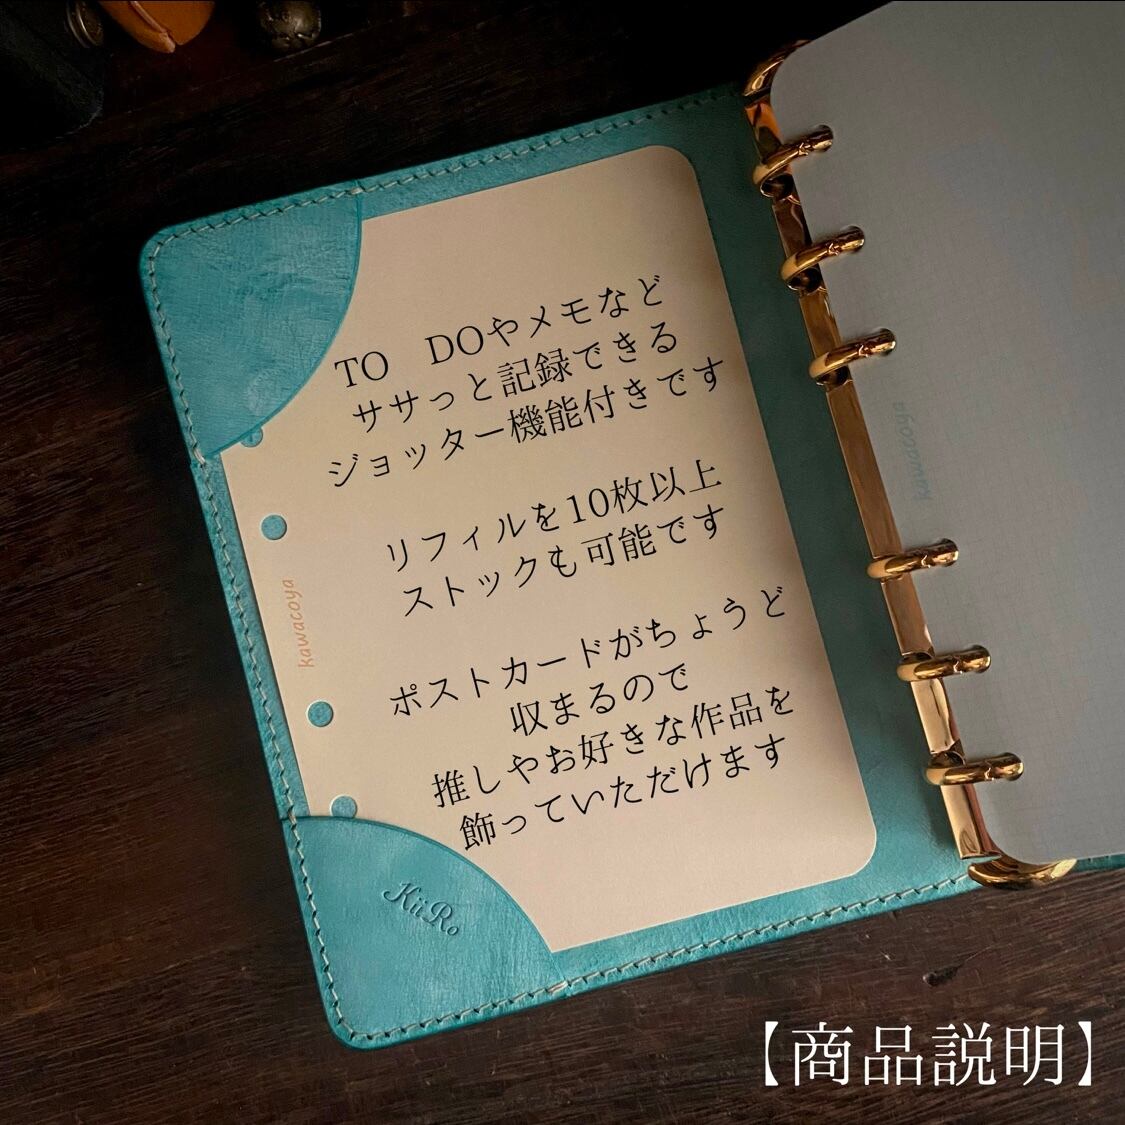 TO　DOやメモなど
ササっと記録できる
ジョッター機能付きです
リフィルを10枚以上
ストックも可能です
ポストカードがちょうど
収まるので
推しやお好きな作品を
飾っていただけます
kawacoya
kawacoya
KiiRo
【商品説明】